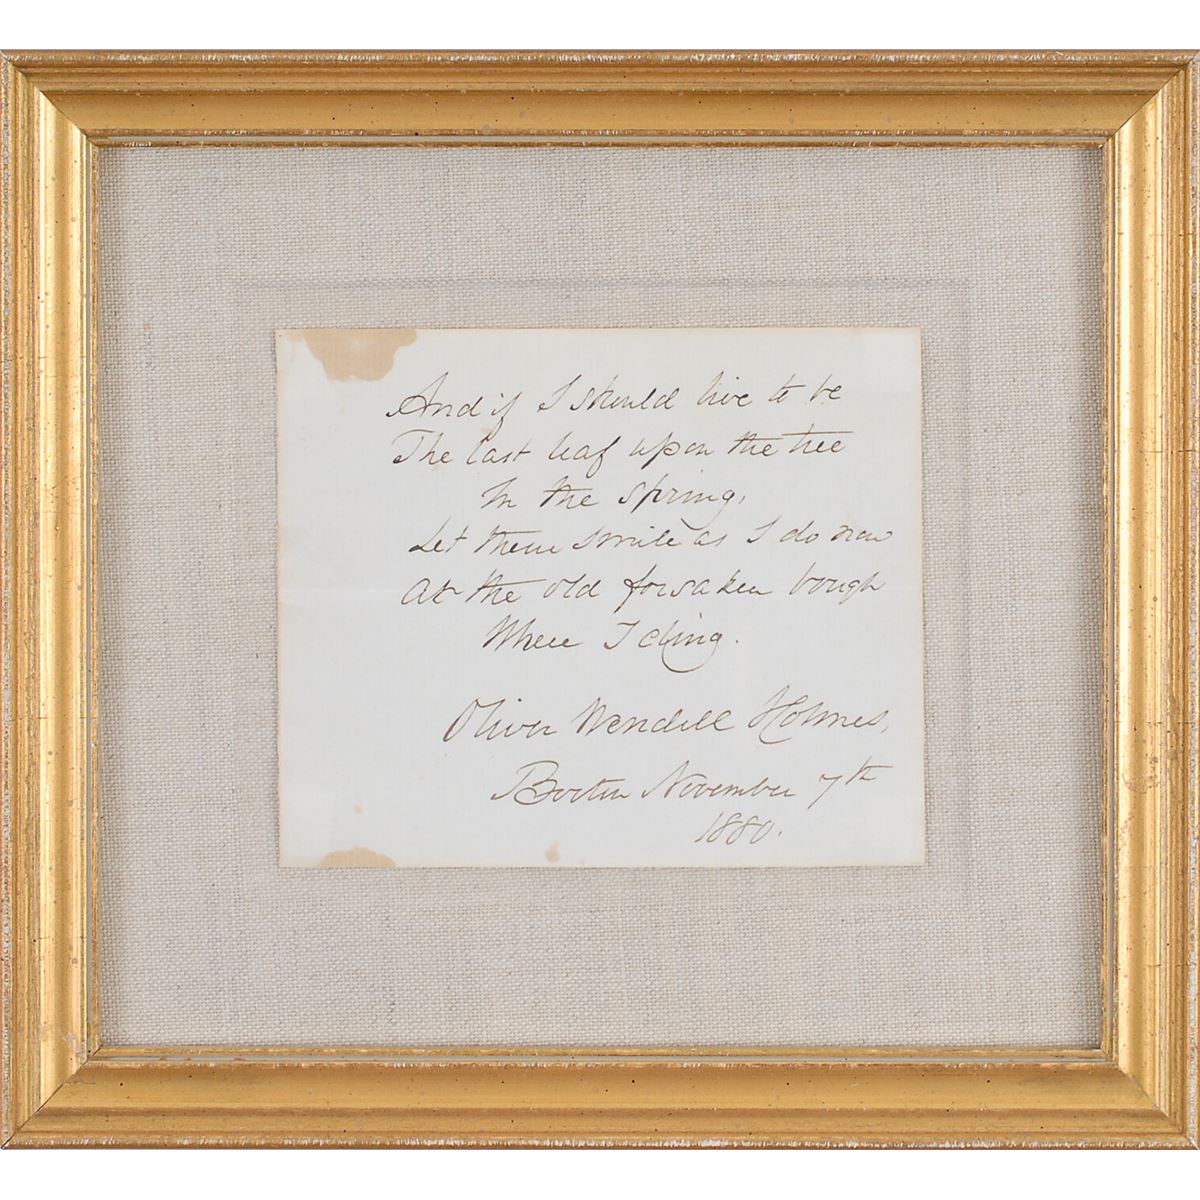 And if I should live to be
The last leaf upon the tree
In the spring,
Let them smile as I do now
At the old forsaken bough
Where I cling.
Oliver Wendell Holmes,
Boston November 7th
1880.